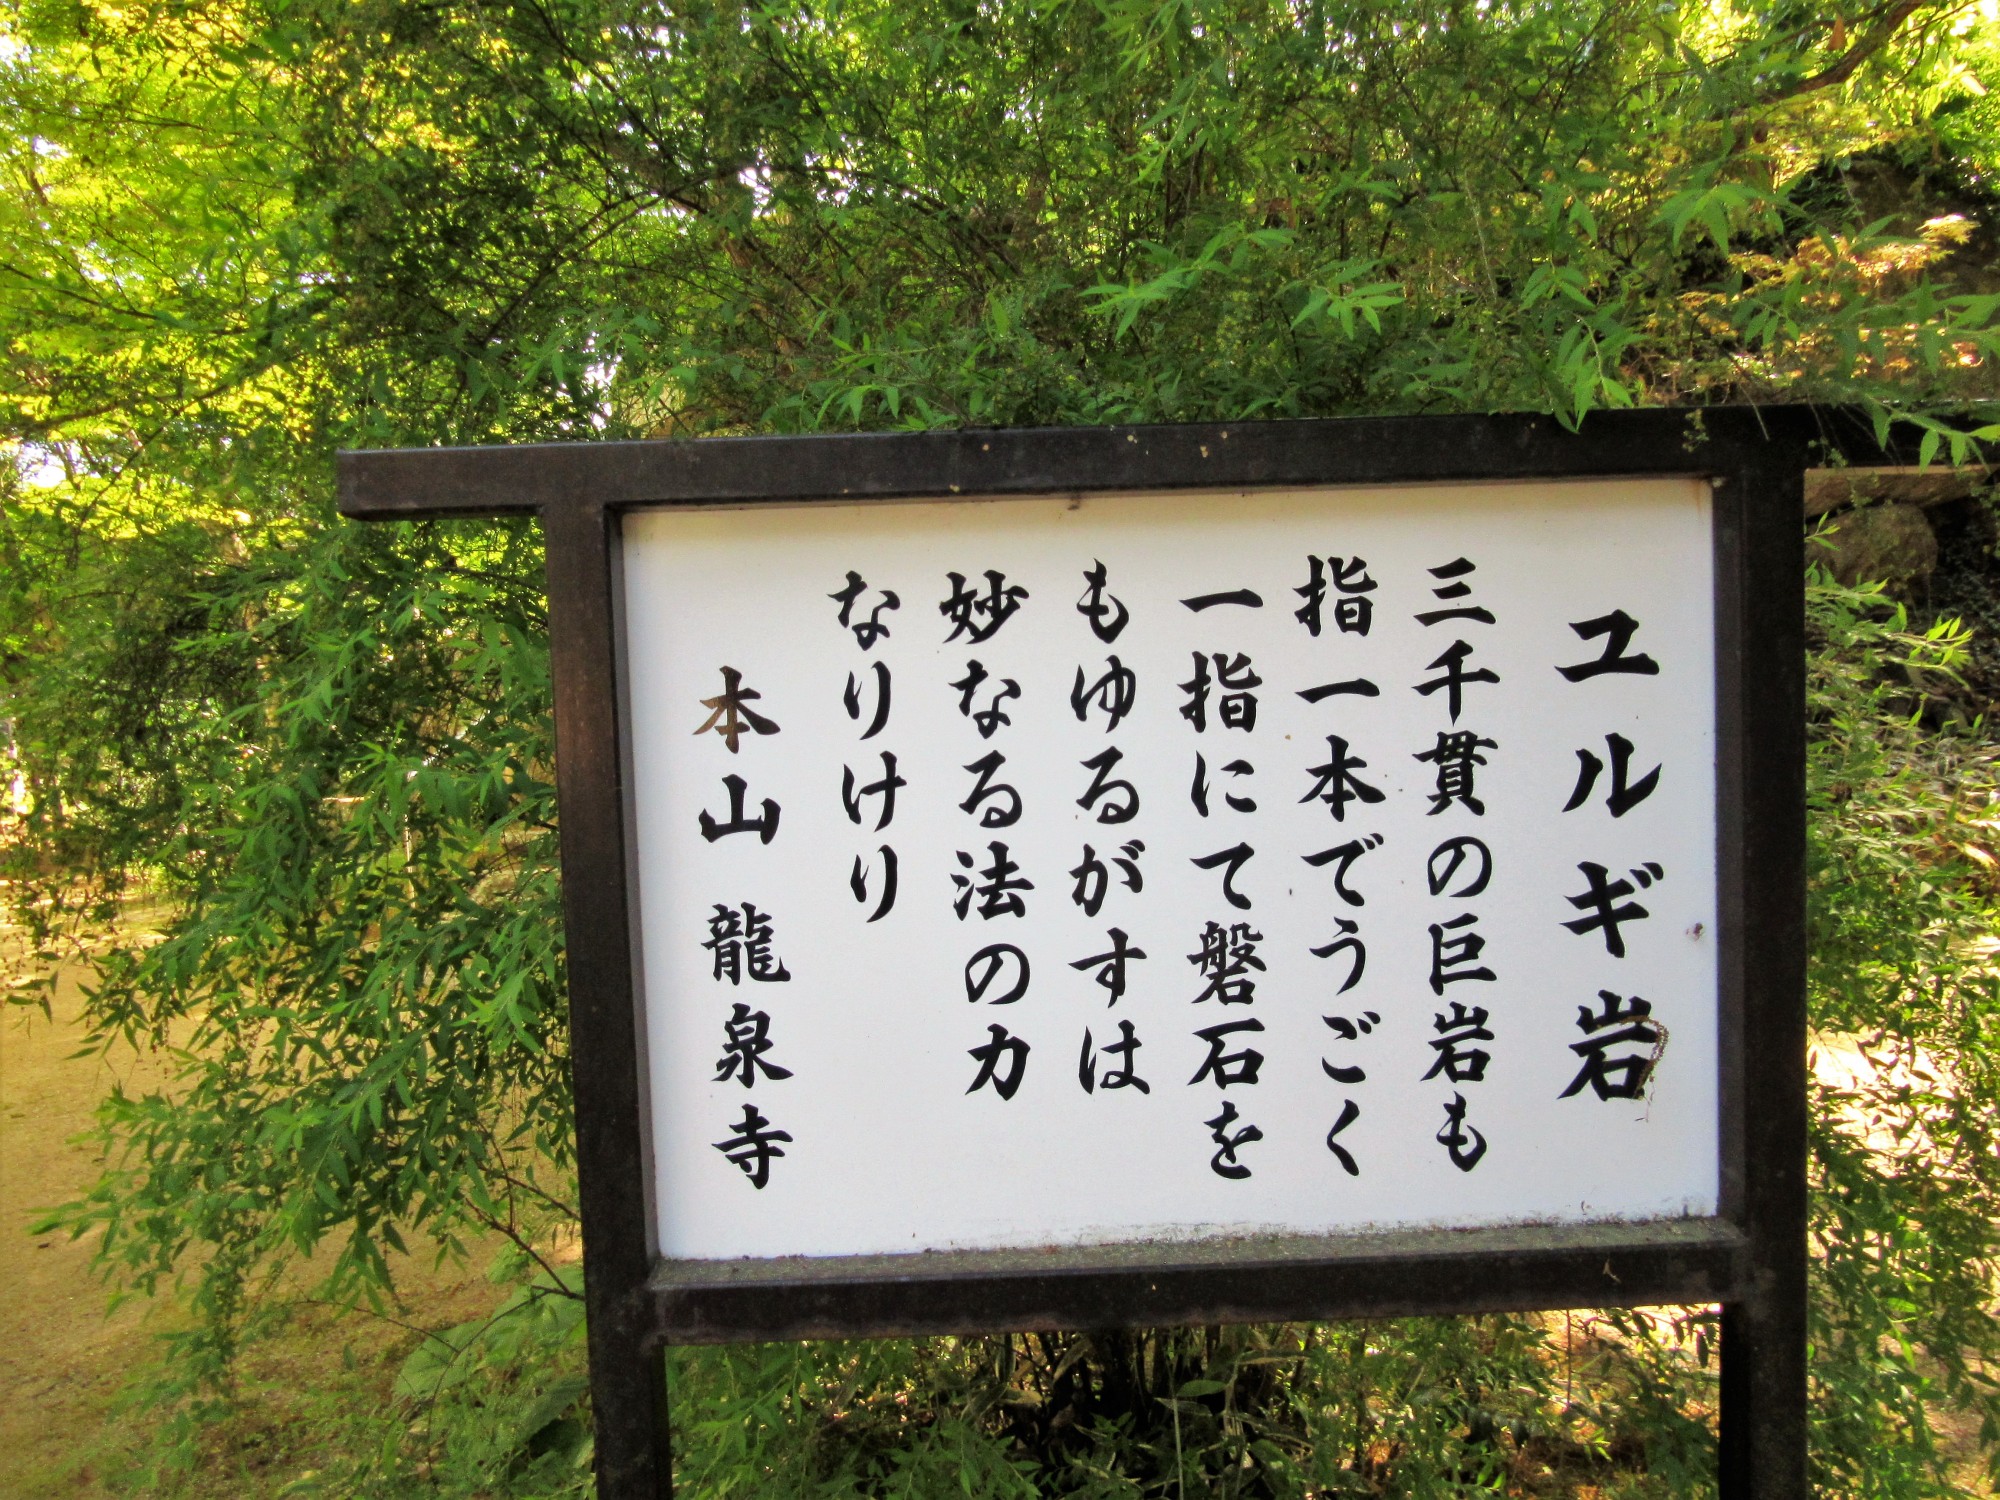 ユルギ岩
三千貫の巨岩も
指一本でうごく
一指にて磐石を
もゆるがすは
妙なる法の力
なりけり
本山 龍泉寺